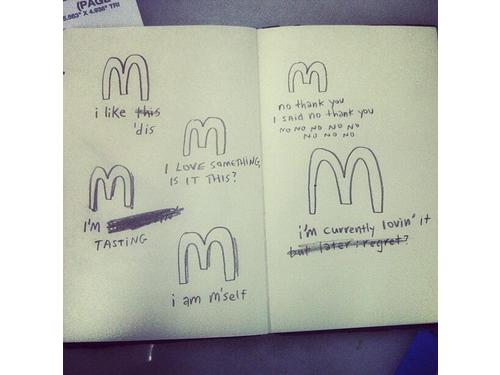 (PAGE
5.563" X 4.938" TRI
M
i like this
'dis
M
I LOVE SOMETHING,
IS IT THIS?
M
I'M
TASTING
M
i am m'self
M
no thank you
I said no thank you
NO NO NO NO NO
NO NO NO
M
i'm currently lovin' it
but later: regret?